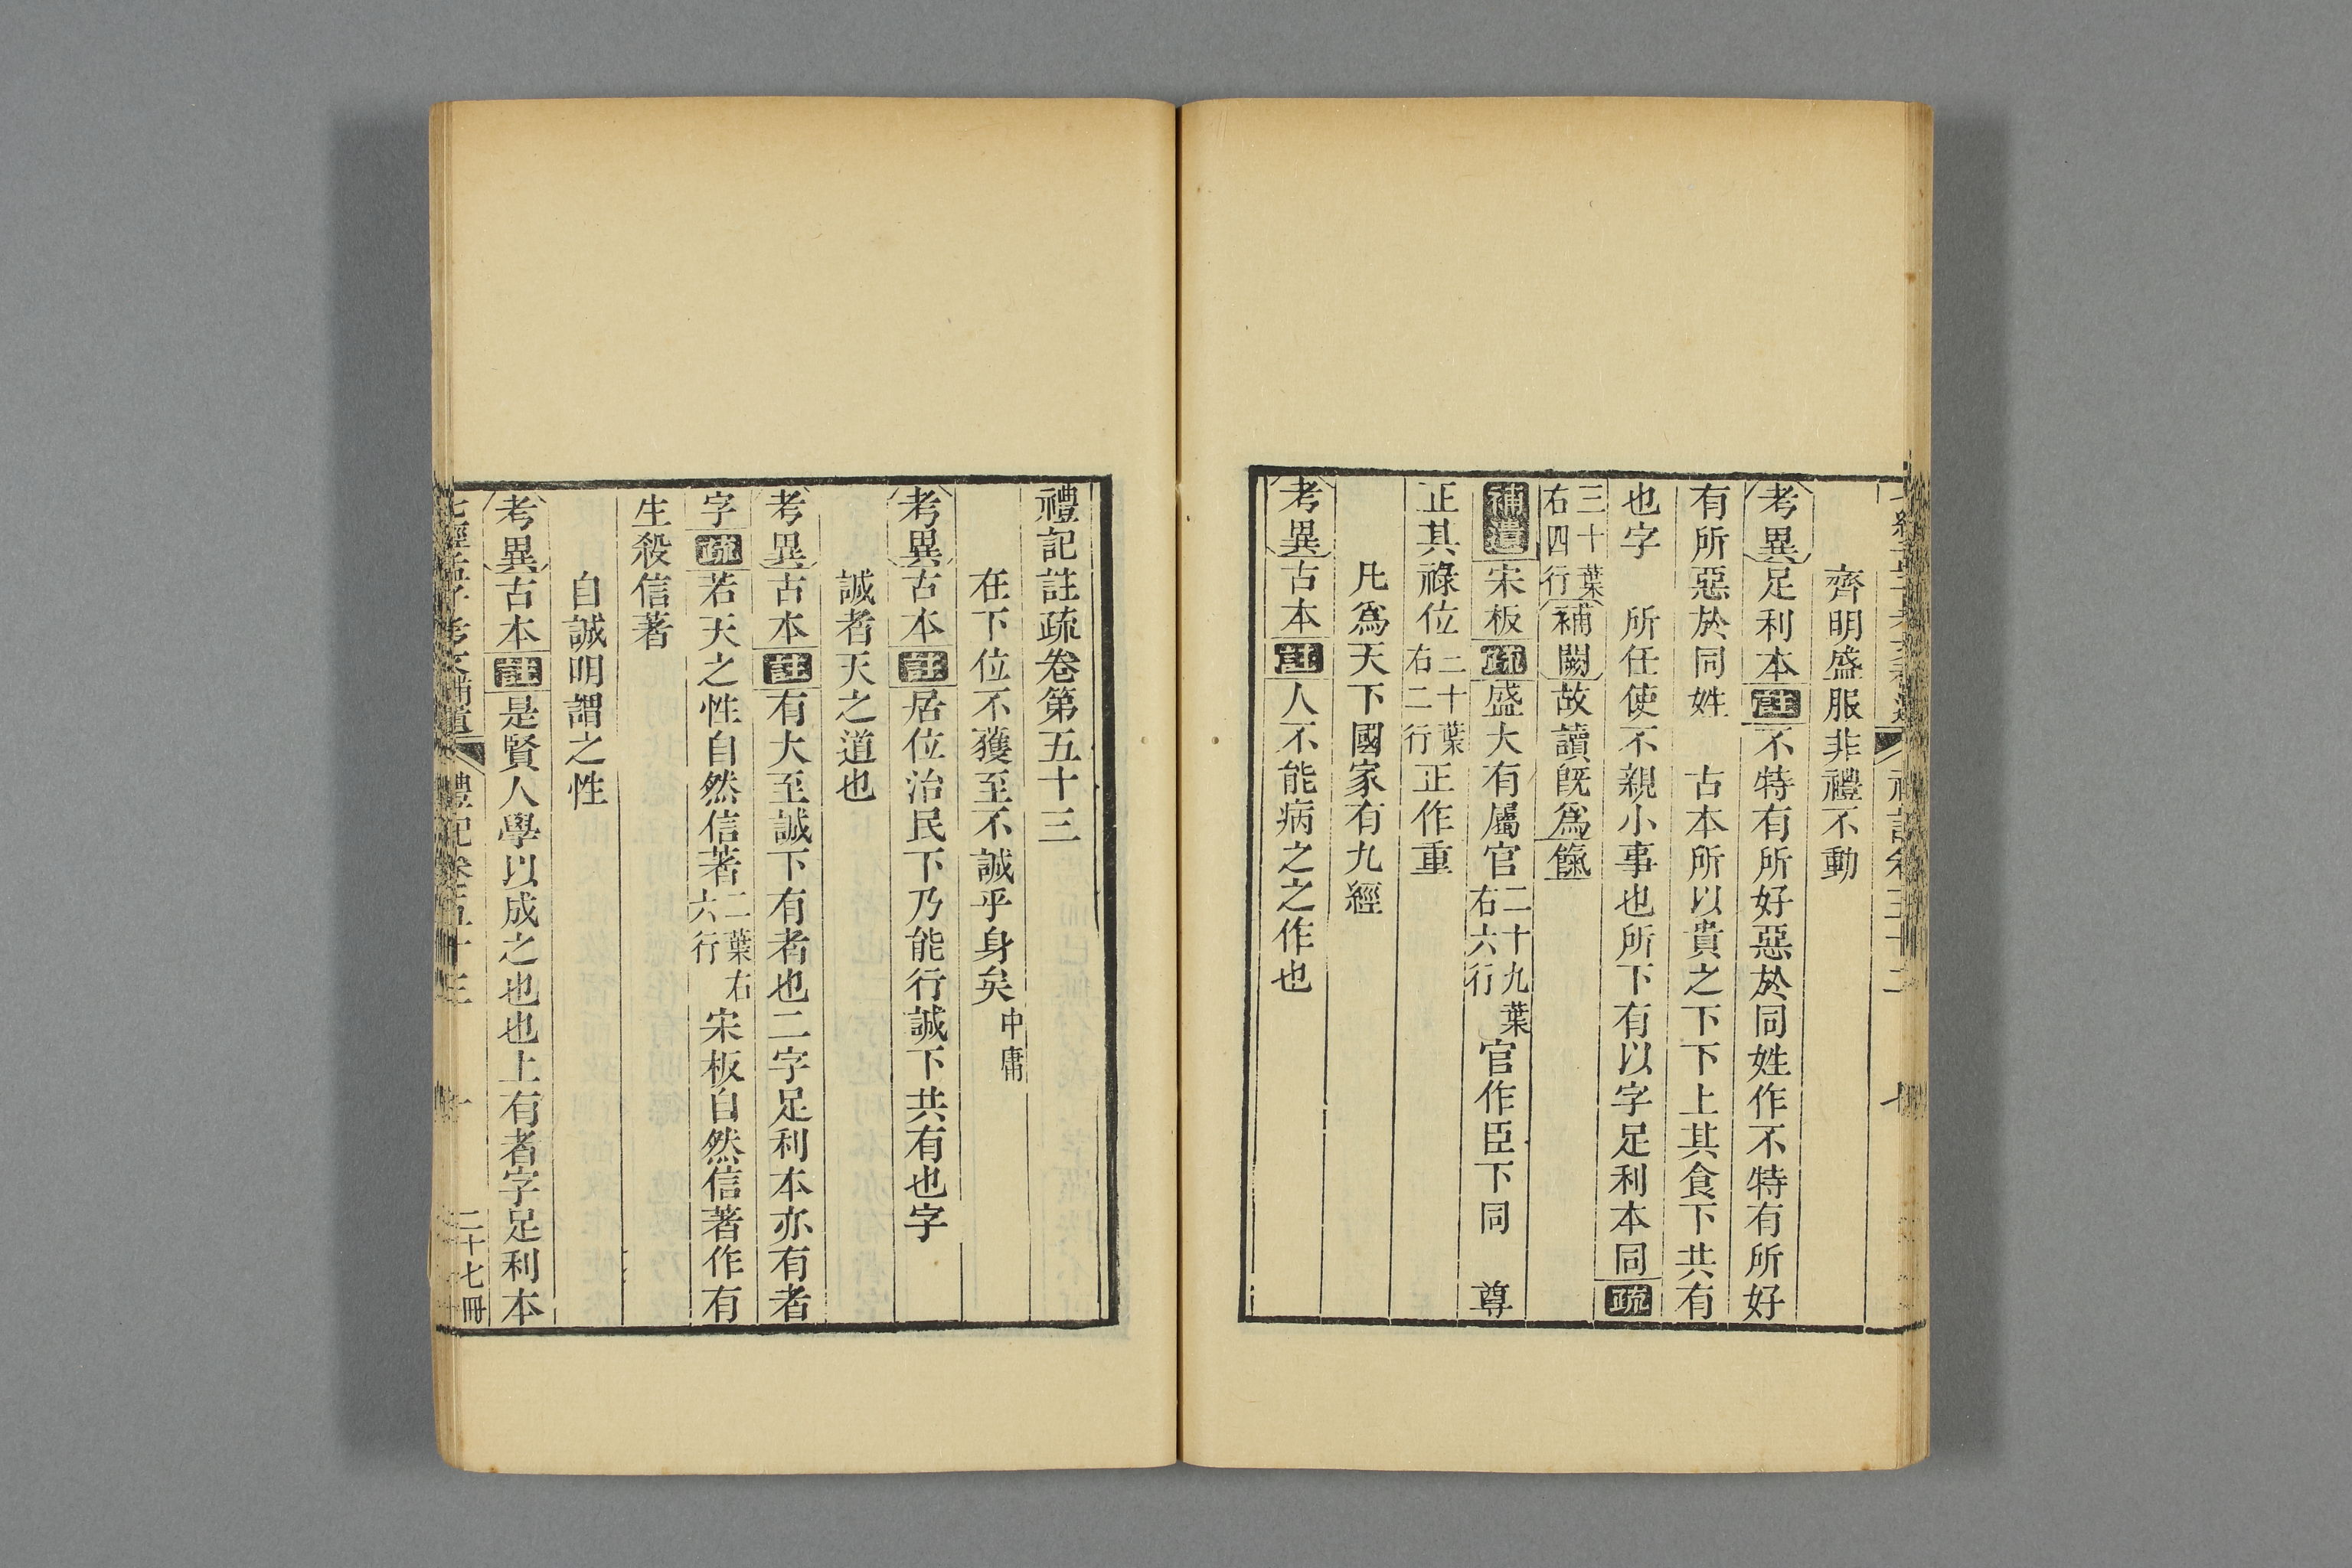 齊明盛服非禮不動
考異足利本註不特有所好惡於同姓作不特有所好
有所惡於同姓　古本所以貴之下下上其食下共有
也字　所任使不親小事也所下有以字足利本同疏
三十葉右四行補闕故讀旣爲餼
補遺宋板疏盛大有屬官二十九葉右六行官作臣下同　尊
正其祿位二十葉右二行正作重
凡爲天下國家有九經
考異古本註人不能病之之作也
禮記註疏卷第五十三
在下位不獲至不誠乎身矣中庸
考異古本註居位治民下乃能行誠下共有也字
誠者天之道也
考異古本註有大至誠下有者也二字足利本亦有者
字疏若天之性自然信著二葉右六行宋板自然信著作有
生殺信著
自誠明謂之性
考異古本註是賢人學以成之也也上有者字足利本
七經孟子考文補遺　禮記卷五十三　十　二十七冊